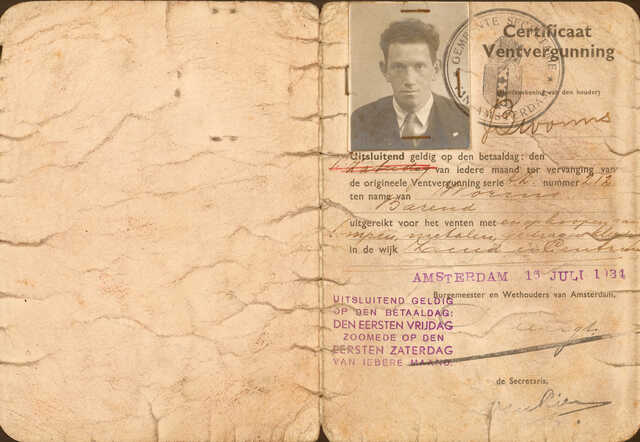 GEMEENTE SECRETARIE
VAN AMSTERDAM
Certificaat
Ventvergunning
(handteekening van den houder)
B Worms
Uitsluitend geldig op den betaaldag: den
van iedere maand ter vervanging van
de origineele Ventvergunning serie nummer 212
ten name van Worms
Barend
uitgereikt voor het venten met en opkoopen van
lompen, metalen,
in de wijk Zuid en Centrum
AMSTERDAM 16 JULI 1934
Burgemeester en Wethouders van Amsterdam,
UITSLUITEND GELDIG
OP DEN BETAALDAG:
DEN EERSTEN VRIJDAG
ZOOMEDE OP DEN
EERSTEN ZATERDAG
VAN IEDERE MAAND.
de Secretaris,